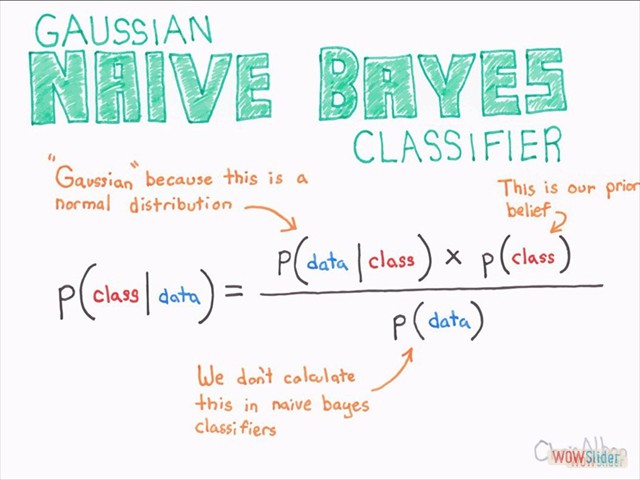 GAUSSIAN
NAIVE BAYES
CLASSIFIER
"Gaussian" because this is a
normal distribution
This is our prior
belief
P(class|data) = P(data|class) × P(class)
P(data)
We don't calculate
this in naive bayes
classifiers
WOWSlider